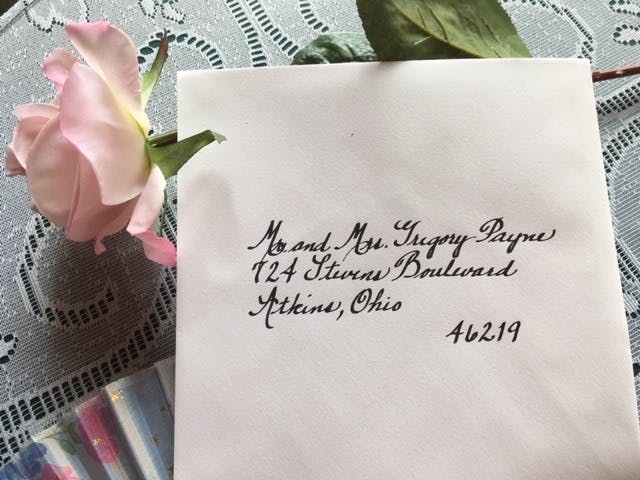 Mr. and Mrs. Gregory Payne
724 Stevens Boulevard
Atkins, Ohio
46219